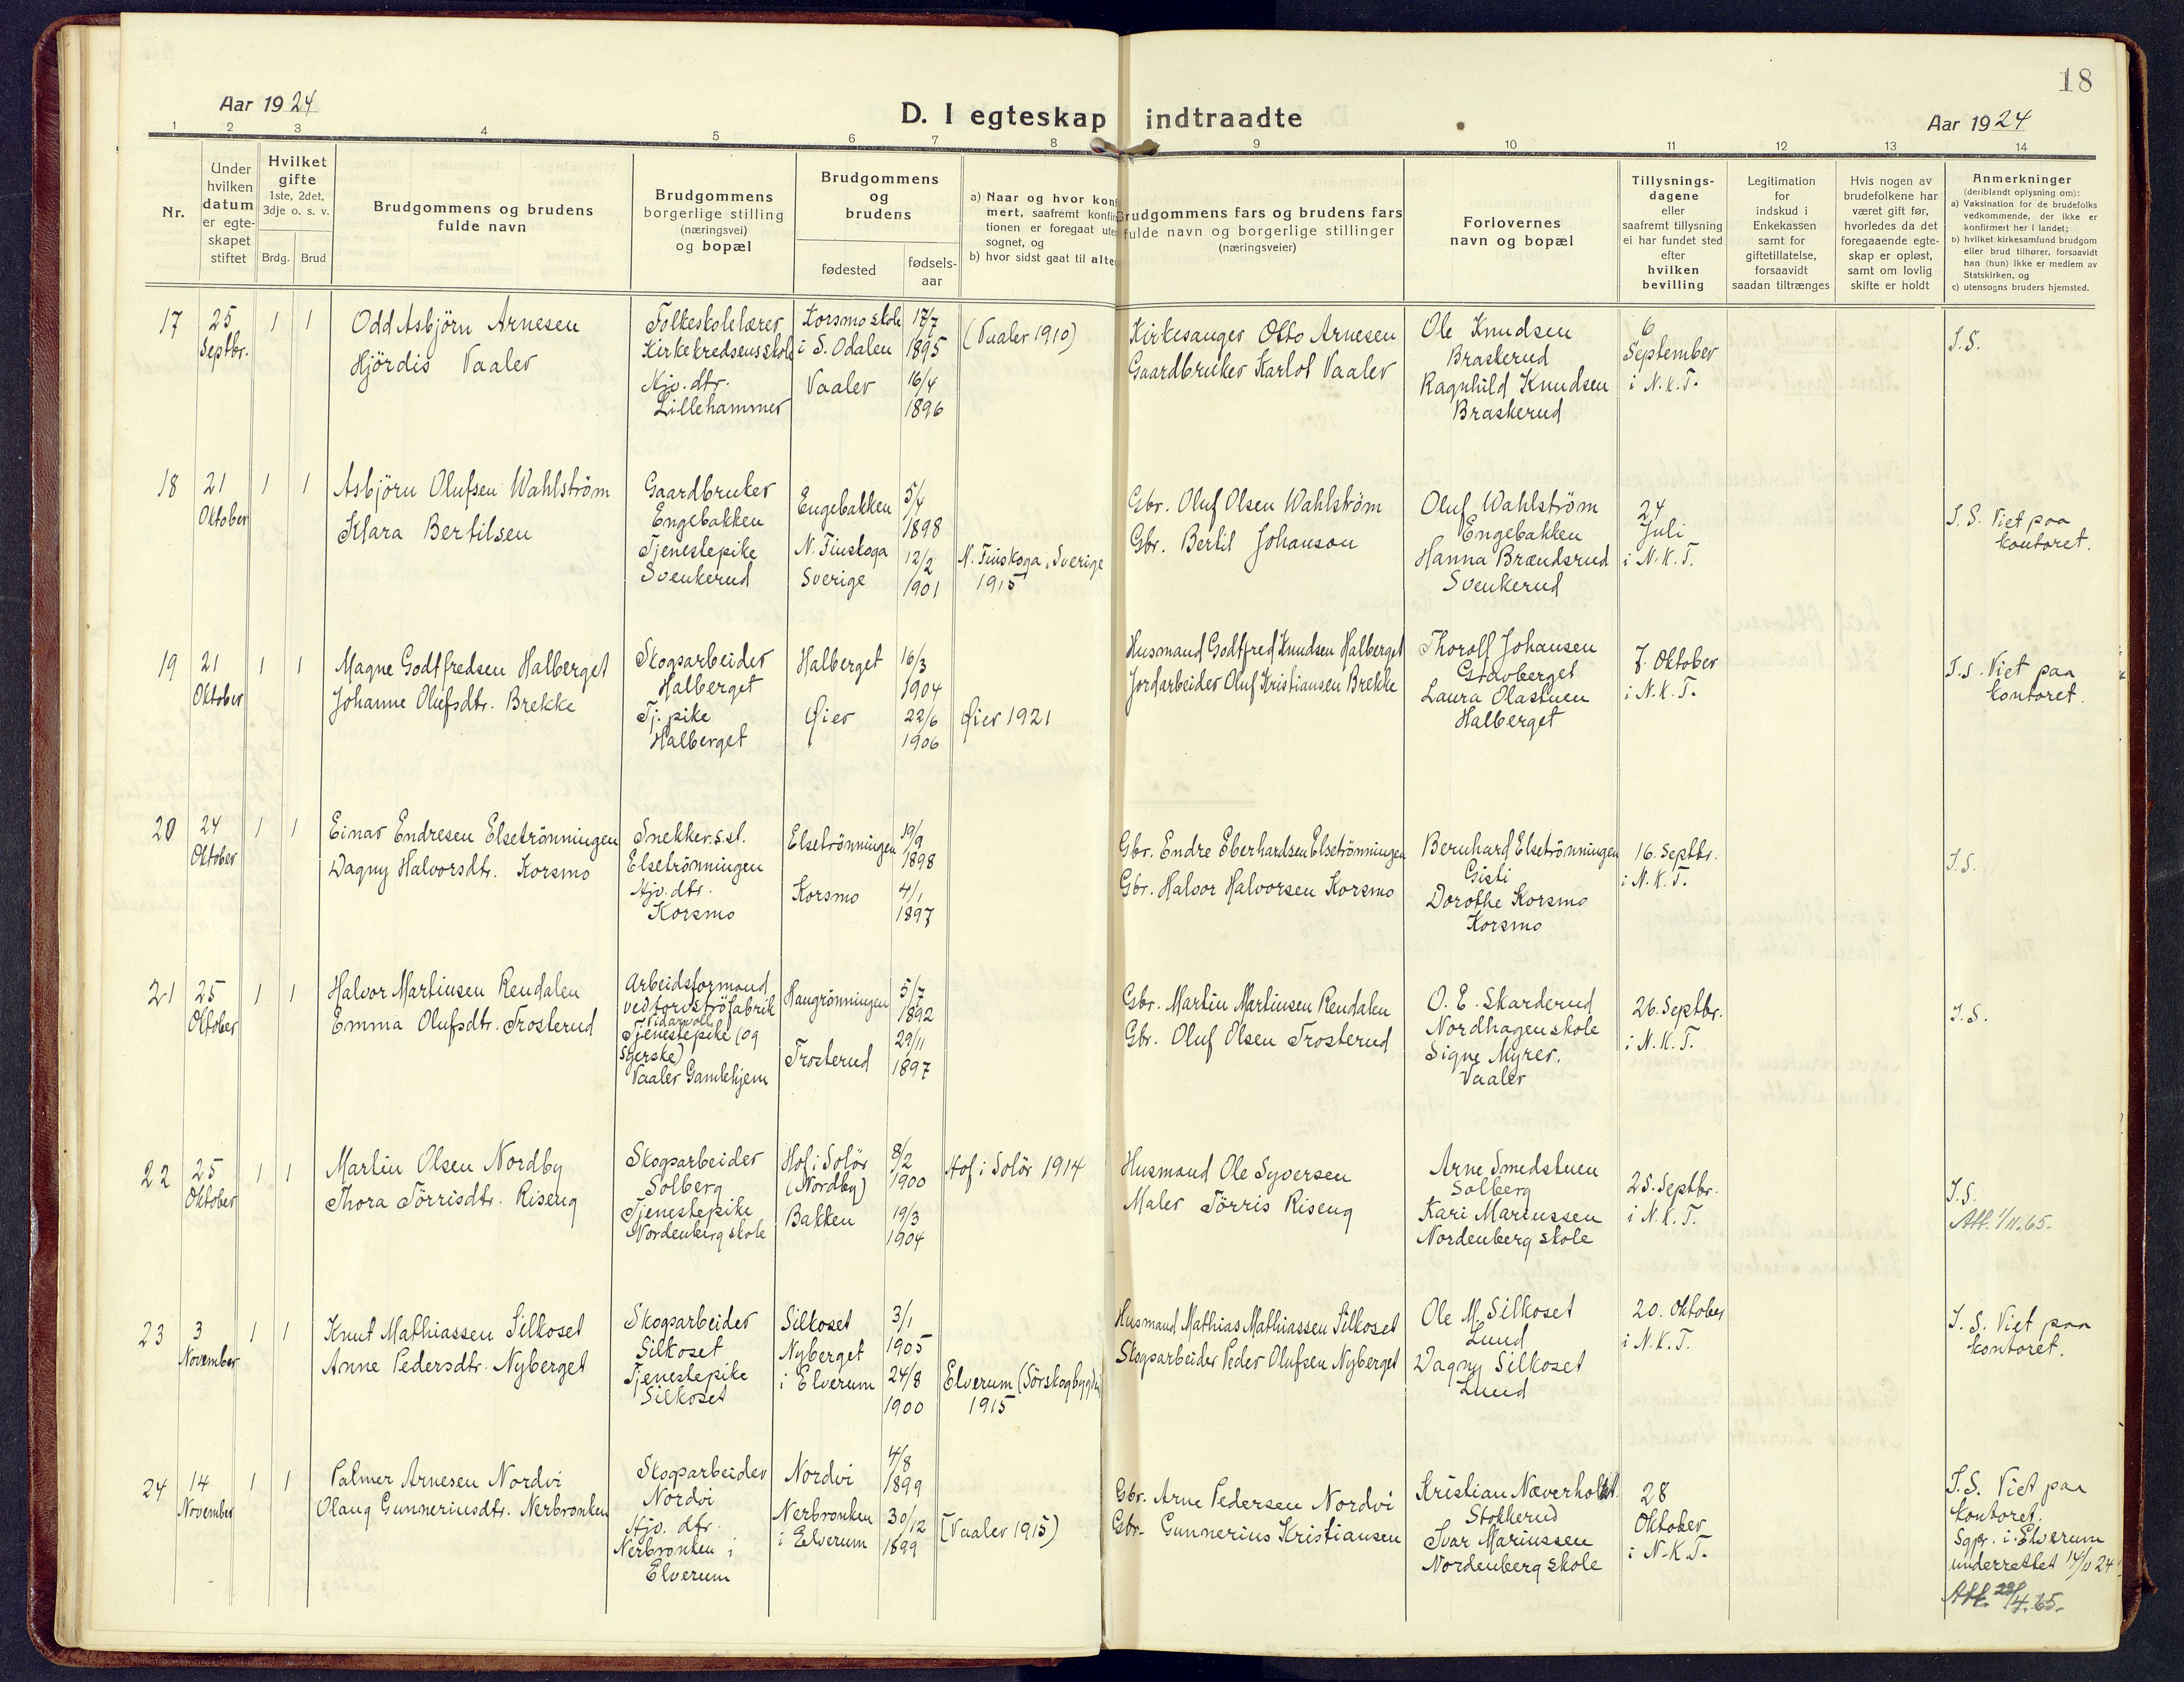 18
Aar 1924
D. I egteskap indtraadte
Aar 1924
1 2 3 4 5 6 7 8 9 10 11 12 13 14
Nr.
Under
hvilken
datum
er egte-
skapet
stiftet
Hvilket
gifte
1ste, 2det,
3dje o. s. v.
Brdg. Brud
Brudgommens og brudens
fulde navn
Brudgommens
borgerlige stilling
(næringsvei)
og bopæl
Brudgommens
og
brudens
fødested
fødsels-
aar
a) Naar og hvor konf
mert, saafremt konfir
tionen er foregaat ute
sognet, og
b) hvor sidst gaat til alte
Brudgommens fars og brudens fars
fulde navn og borgerlige stillinger
(næringsveier)
Forlovernes
navn og bopæl
Tillysnings-
dagene
eller
saafremt tillysning
ei har fundet sted
efter
hvilken
bevilling
Legitimation
for
indskud i
Enkekassen
samt for
giftetillatelse,
forsaavidt
saadan tiltrænges
Hvis nogen av
brudefolkene har
været gift før,
hvorledes da det
foregaaende egte-
skap er opløst,
samt om lovlig
skifte er holdt
Anmerkninger
(deriblandt oplysning om):
a) Vaksination for de brudefolks
vedkommende, der ikke er
konfirmert her i landet;
b) hvilket kirkesamfund brudgom
eller brud tilhører, forsaavidt
han (hun) ikke er medlem av
Statskirken, og
c) utensogns bruders hjemsted.
17
25
Septbr.
1 1
Odd Asbjörn Arnesen
Hjördis Vaaler
Folkeskolelærer
Kirkekredsens skole
Hjv. dtr.
Lillehammer
Korsmo skole
i S. Odalen
Vaaler
17/7
1895
16/4
1896
(Vaaler 1910)
Kirkesanger Otto Arnesen
Gaardbruker Karlot Vaaler
Ole Knudsen
Braskerud
Ragnhild Knudsen
Braskerud
6
September
i N.K.T.
I.S.
18
21
Oktober
1 1
Asbjörn Olufsen Wahlström
Klara Bertilsen
Gaardbruker
Engebakken
Tjenestepike
Svenkerud
Engebakken
N. Finskoga
Sverige
5/4
1898
12/2
1901
N. Finskoga, Sverige
1915
Gbr. Oluf Olsen Wahlström
Gbr. Bertil Johanson
Oluf Wahlström
Engebakken
Hanna Brændsrud
Svenkerud
24
Juli
i N.K.T.
I.S. Viet paa
kontoret.
19
21
Oktober
1 1
Magne Godtfredsen Halberget
Johanne Olufsdtr. Brekke
Skogsarbeider
Halberget
Tj. pike
Halberget
Halberget
Øier
16/3
1904
22/6
1906
Øier 1921
Husmand Godtfred Knudsen Halberget
Jordarbeider Oluf Kristiansen Brekke
Thorolf Johansen
Stavberget
Laura Olastuen
Halberget
7. Oktober
i N.K.T.
I.S. Viet paa
kontoret.
20
24
Oktober
1 1
Einar Endresen Elsetrönningen
Dagny Halvorsdtr. Korsmo
Snekker. s.st.
Elsetrönningen
Hjv. dtr.
Korsmo
Elsetrönningen
Korsmo
19/9
1898
4/1
1897
Gbr. Endre Eberhardsen Elsetrönningen
Gbr. Halvor Halvorsen Korsmo
Bernhard Elsetrönningen
Gisti
Dorothe Korsmo
Korsmo
16. Septbr.
i N.K.T.
I.S.
21
25
Oktober
1 1
Halvor Martinsen Rendalen
Emma Olufsdtr. Trosterud
Arbeidsformand
ved torvströfabrik
Vidarvoll
Tjenestepike (og
syerske)
Vaaler Gamlehjem
Haugrönningen
Trosterud
5/7
1892
29/11
1897
Gbr. Martin Martinsen Rendalen
Gbr. Oluf Olsen Trosterud
O. E. Skarderud
Nordhagen skole
Signe Myrer.
Vaaler
26. Septbr.
i N.K.T.
I.S.
22
25
Oktober
1 1
Martin Olsen Nordby
Thora Törrisdtr. Riseng
Skogsarbeider
Solberg
Tjenestepike
Nordenberg skole
Hof i Solör
(Nordby)
Bakken
8/2
1900
19/3
1904
Hof i Solör 1914
Husmand Ole Syversen
Maler Törris Riseng
Arne Smedstuen
Solberg
Kari Mariussen
Nordenberg skole
25. Septbr.
i N.K.T.
I.S.
Att. 1/11.65.
23
3
November
1 1
Knut Mathiassen Silkoset
Anne Pedersdtr. Nyberget
Skogsarbeider
Silkoset
Tjenestepike
Silkoset
Silkoset
Nyberget
i Elverum
3/1
1905
24/8
1900
Elverum (Sörskogbygden)
1915
Husmand Mathias Mathiassen Silkoset
Skogsarbeider Peder Olufsen Nyberget
Ole M. Silkoset
Lund
Dagny Silkoset
Lund
20. Oktober
i N.K.T.
I.S. Viet paa
kontoret.
24
14
November
1 1
Palmer Arnesen Nordvi
Olaug Gunneriusdtr. Nerbronken
Skogsarbeider
Nordvi
Hjv. dtr.
Nerbronken i
Elverum
Nordvi
Nerbronken
i Elverum
4/8
1899
30/12
1899
(Vaaler 1915)
Gbr. Arne Pedersen Nordvi
Gbr. Gunnerius Kristiansen
Kristian Næverholt.
Stokkerud
Ivar Mariussen
Nordenberg skole
28
Oktober
i N.K.T.
I.S. Viet paa
kontoret.
Sgpr. i Elverum
underrettet 14/11 24
Att. 29/4.65.